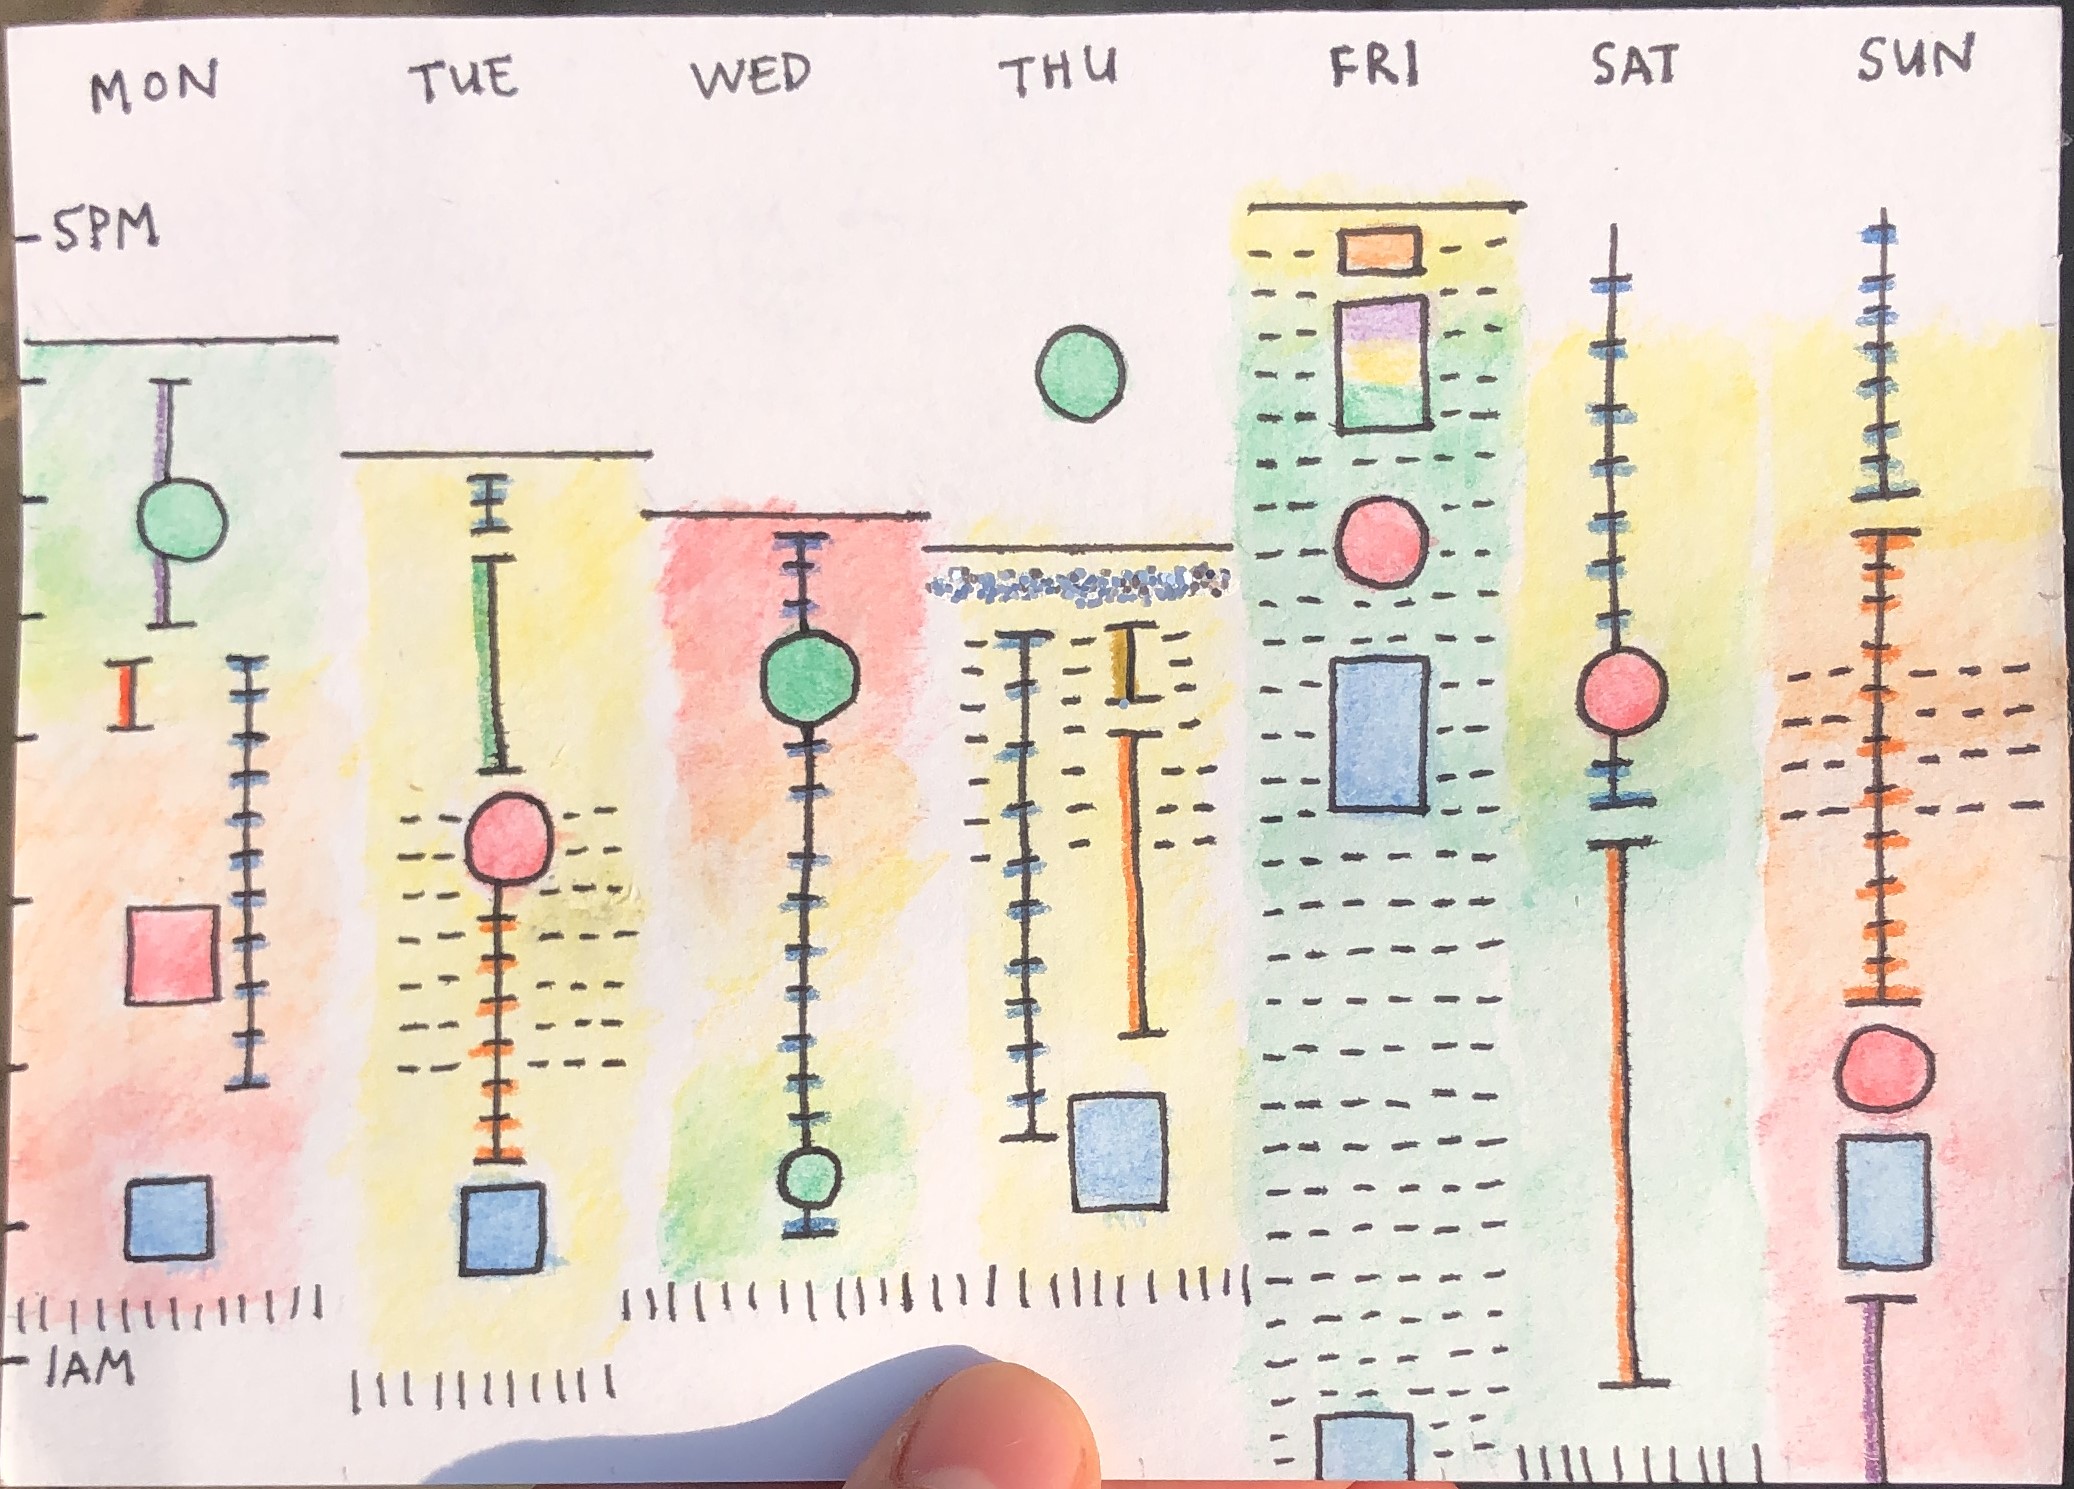 MON TUE WED THU FRI SAT SUN
5PM
1AM